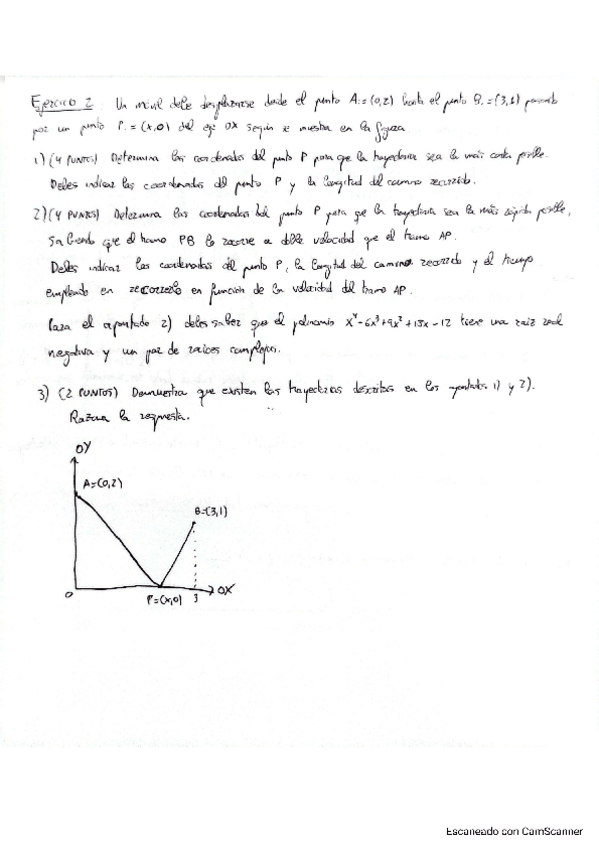 Ejercicio 2 Un móvil debe desplazarse desde el punto A:=(0,2) hasta el punto B:=(3,1) pasando
por un punto P:=(x,0) del eje OX según se muestra en la figura
1) (4 PUNTOS) Determina las coordenadas del punto P para que la trayectoria sea la más corta posible.
Debes indicar las coordenadas del punto P y la longitud del camino recorrido.
2) (4 PUNTOS) Determina las coordenadas del punto P para que la trayectoria sea la más rápida posible,
sabiendo que el tramo PB lo recorre a doble velocidad que el tramo AP.
Debes indicar las coordenadas del punto P, la longitud del camino recorrido y el tiempo
empleado en recorrerlo en función de la velocidad del tramo AP.
Para el apartado 2) debes saber que el polinomio x⁴-6x³+9x²+13x-12 tiene una raíz real
negativa y un par de raíces complejas.
3) (2 PUNTOS) Demuestra que existen las trayectorias descritas en los apartados 1) y 2).
Razona la respuesta.
OY
A=(0,2)
B=(3,1)
O
P=(x,0)
3
OX
Escaneado con CamScanner